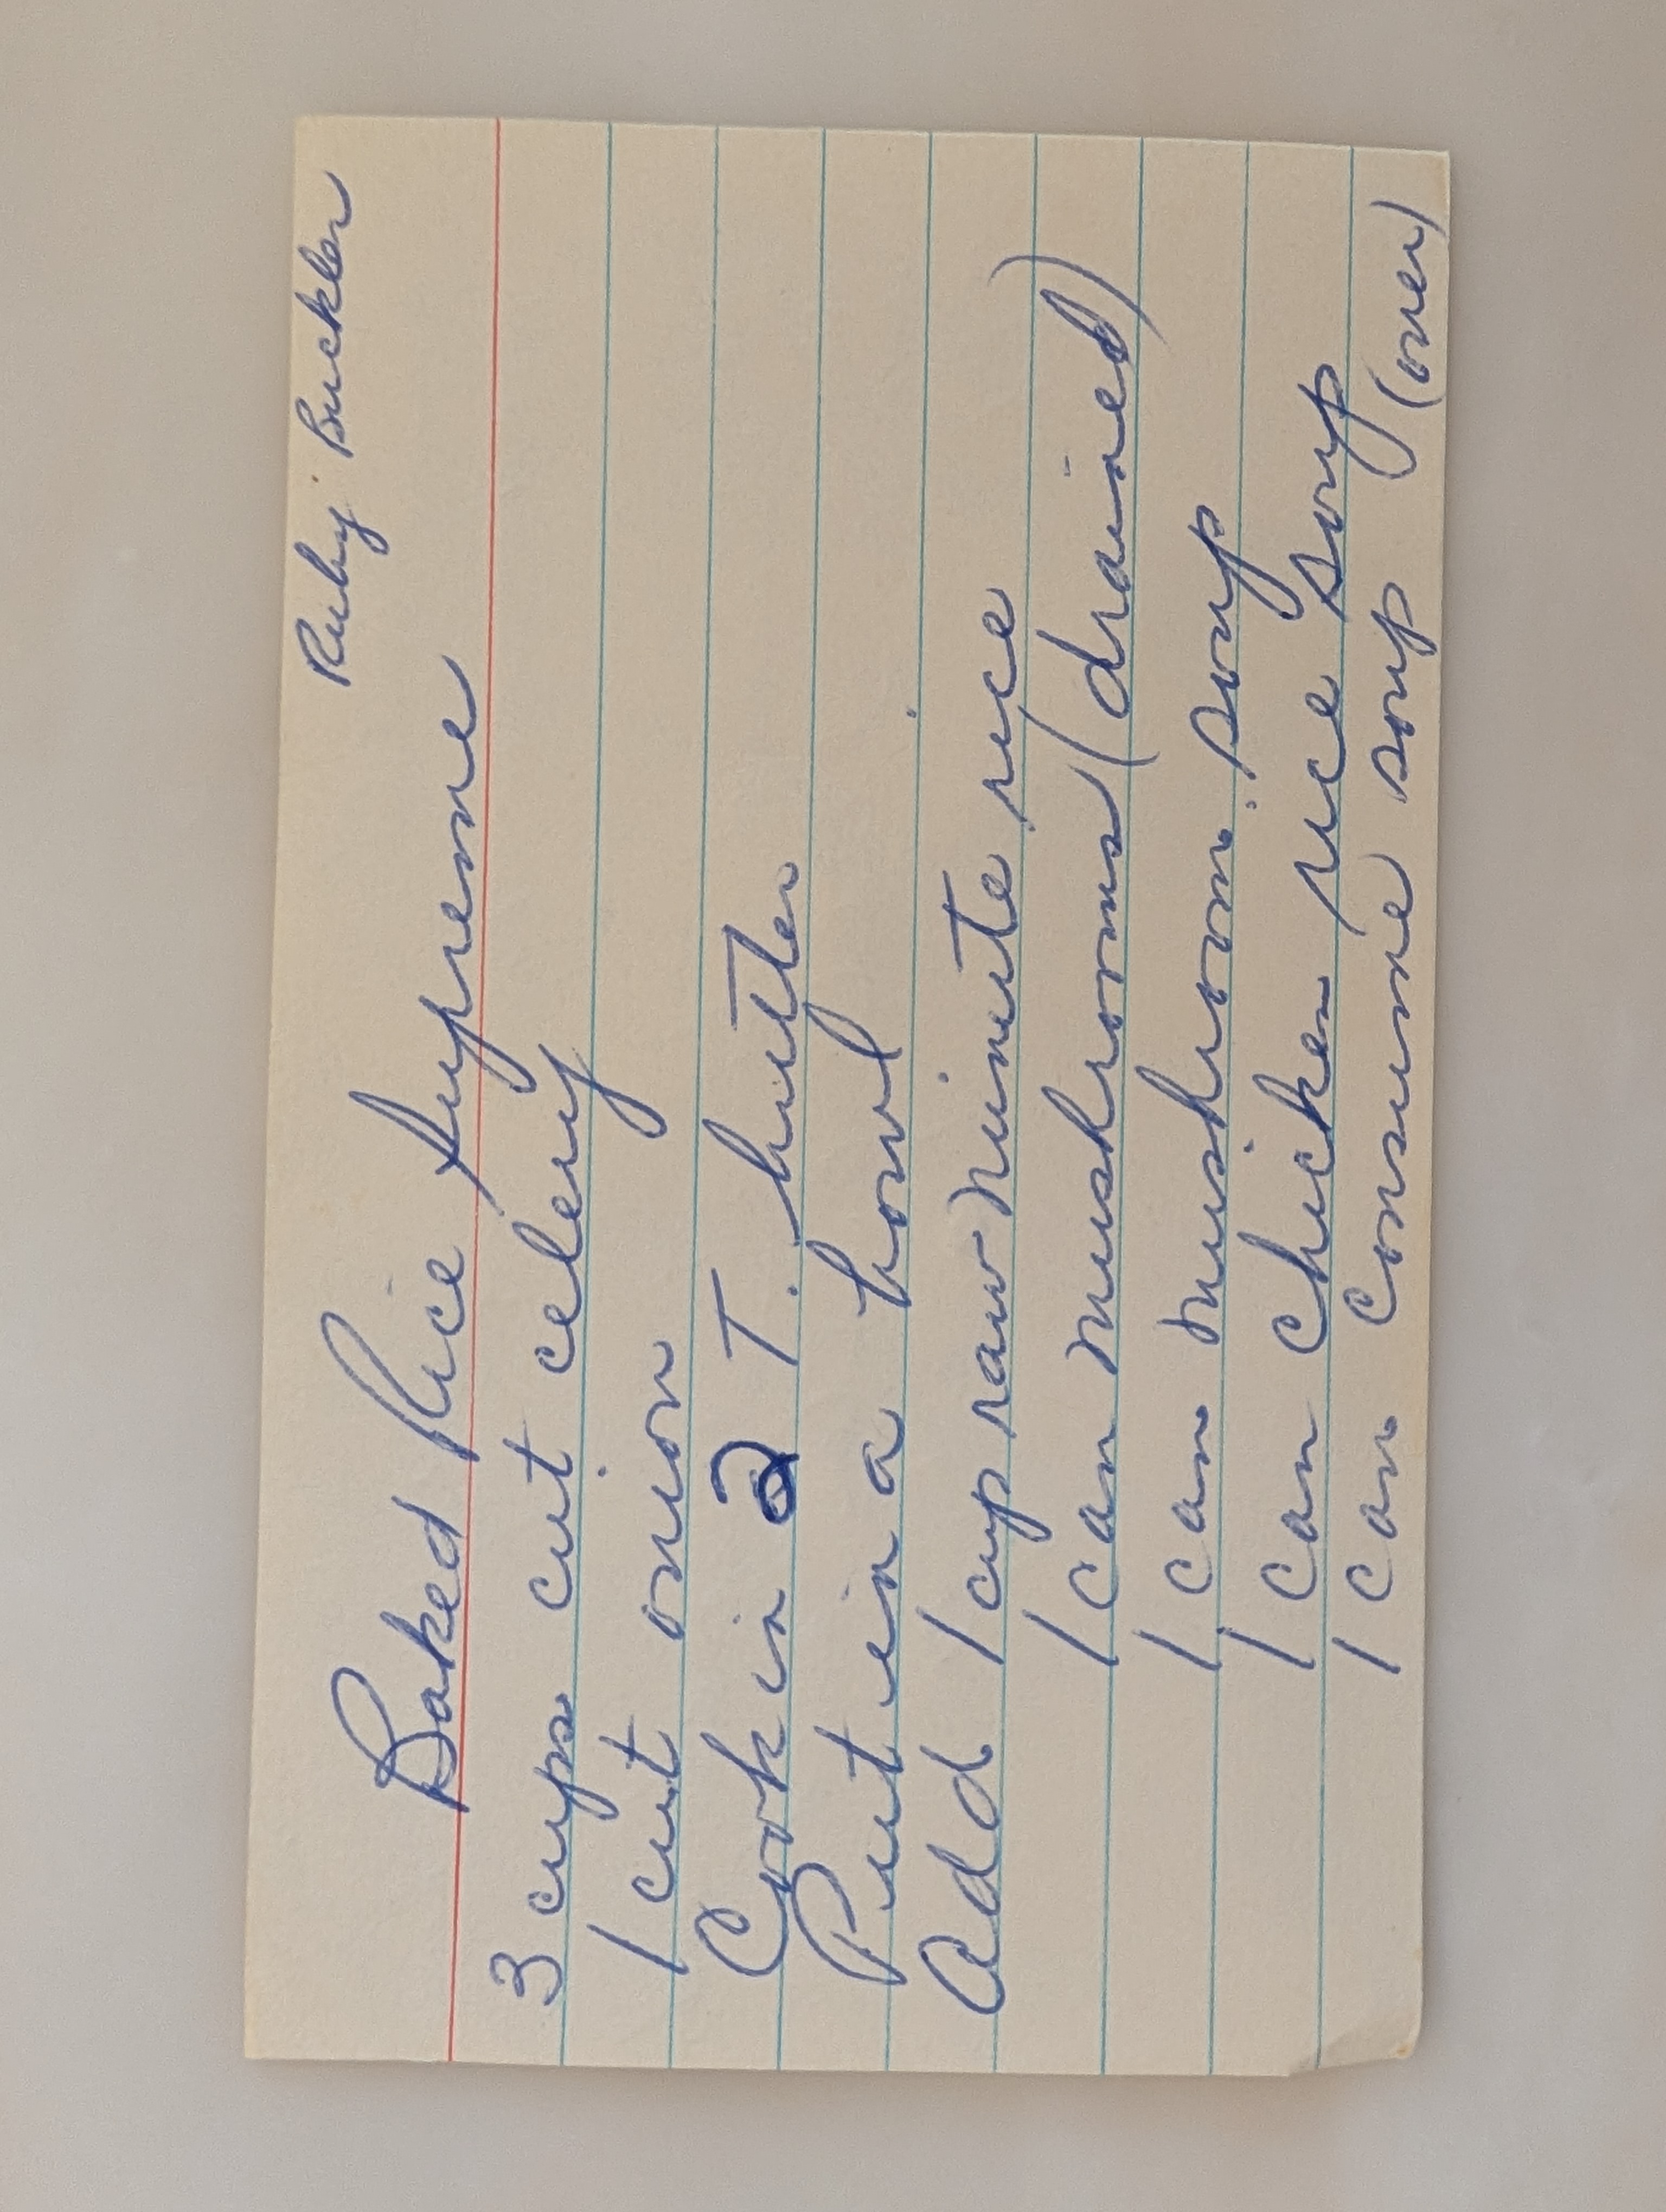 Ruby Buckler
Baked Rice Supreme
3 cups cut celery
1 cut onion
Cook in 2 T. butter
Put in a bowl
Add 1 cup raw minute rice
1 can mushrooms (drained)
1 can mushroom soup
1 can chicken rice soup
1 can consume soup (over)